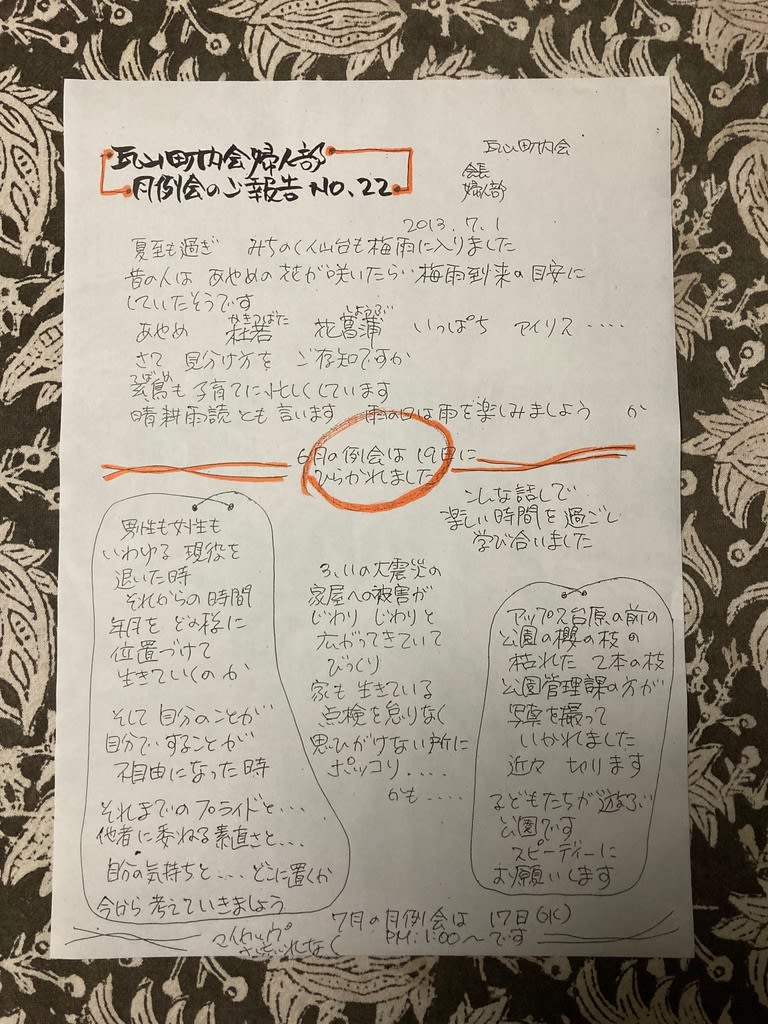 瓦山町内会婦人部
月例会のご報告 NO.22
瓦山町内会
会長
婦人部
2013.7.1
夏至も過ぎ みちのく仙台も梅雨に入りました
昔の人は あやめの花が咲いたら 梅雨到来の目安に
していたそうです
かきつばた しょうぶ
あやめ 杜若 花菖蒲 いっぱち アイリス ‥‥
さて 見分け方を ご存知ですか
つばめ
玄鳥も子育てに忙しくしています
晴耕雨読とも言います 雨の日は雨を楽しみましよう か
6月の例会は 19日に
ひらかれました
こんな話しで
楽しい時間を過ごし
学び合いました
男性も女性も
いわゆる 現役を
退いた時
それからの時間
年月を どの様に
位置づけて
生きていくのか
そして 自分のことが
自分ですることが
不自由になった時
それまでのプライドと‥‥
他者に委ねる素直さと‥‥
自分の気持ちと‥‥どこに置くか
今から考えていきましよう
3.11の大震災の
家屋への被害が
じわり じわりと
広がってきていて
びっくり
家も生きている
点検を怠りなく
思ひがけない所に
ポッコリ‥‥
かも‥‥
アップス台原の前の
公園の櫻の枝の
枯れた 2本の枝
公園管理課の方が
写真を撮って
いかれました
近々 切ります
子どもたちが遊ぶ
公園です
スピーディーに
お願いします
7月の月例会は 17日(水)
PM:1:00〜です
マイカップ